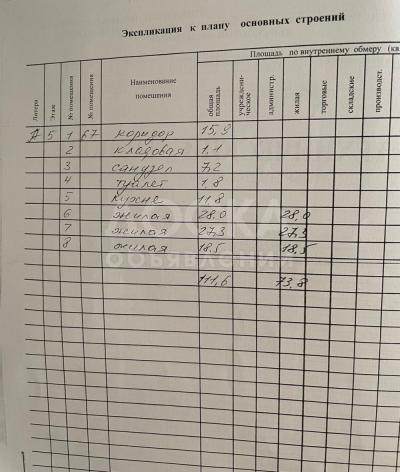 Экспликация к плану основных строений
Литера
Этаж
№ помещения
№ помещения
Наименование помещения
Площадь по внутреннему обмеру (кв.
общая площадь
учрежден-ческое
администр.
жилая
торговые
складские
производст.
А 5 1 67 коридор 15,9
2 кладовая 1.1
3 санузел 7,2
4 туалет 1.8
5 кухня 11.8
6 жилая 28,0 28,0
7 жилая 27,3 27,3
8 жилая 18,5 18,5
111,6 73,8
ДОСКА
объявлений